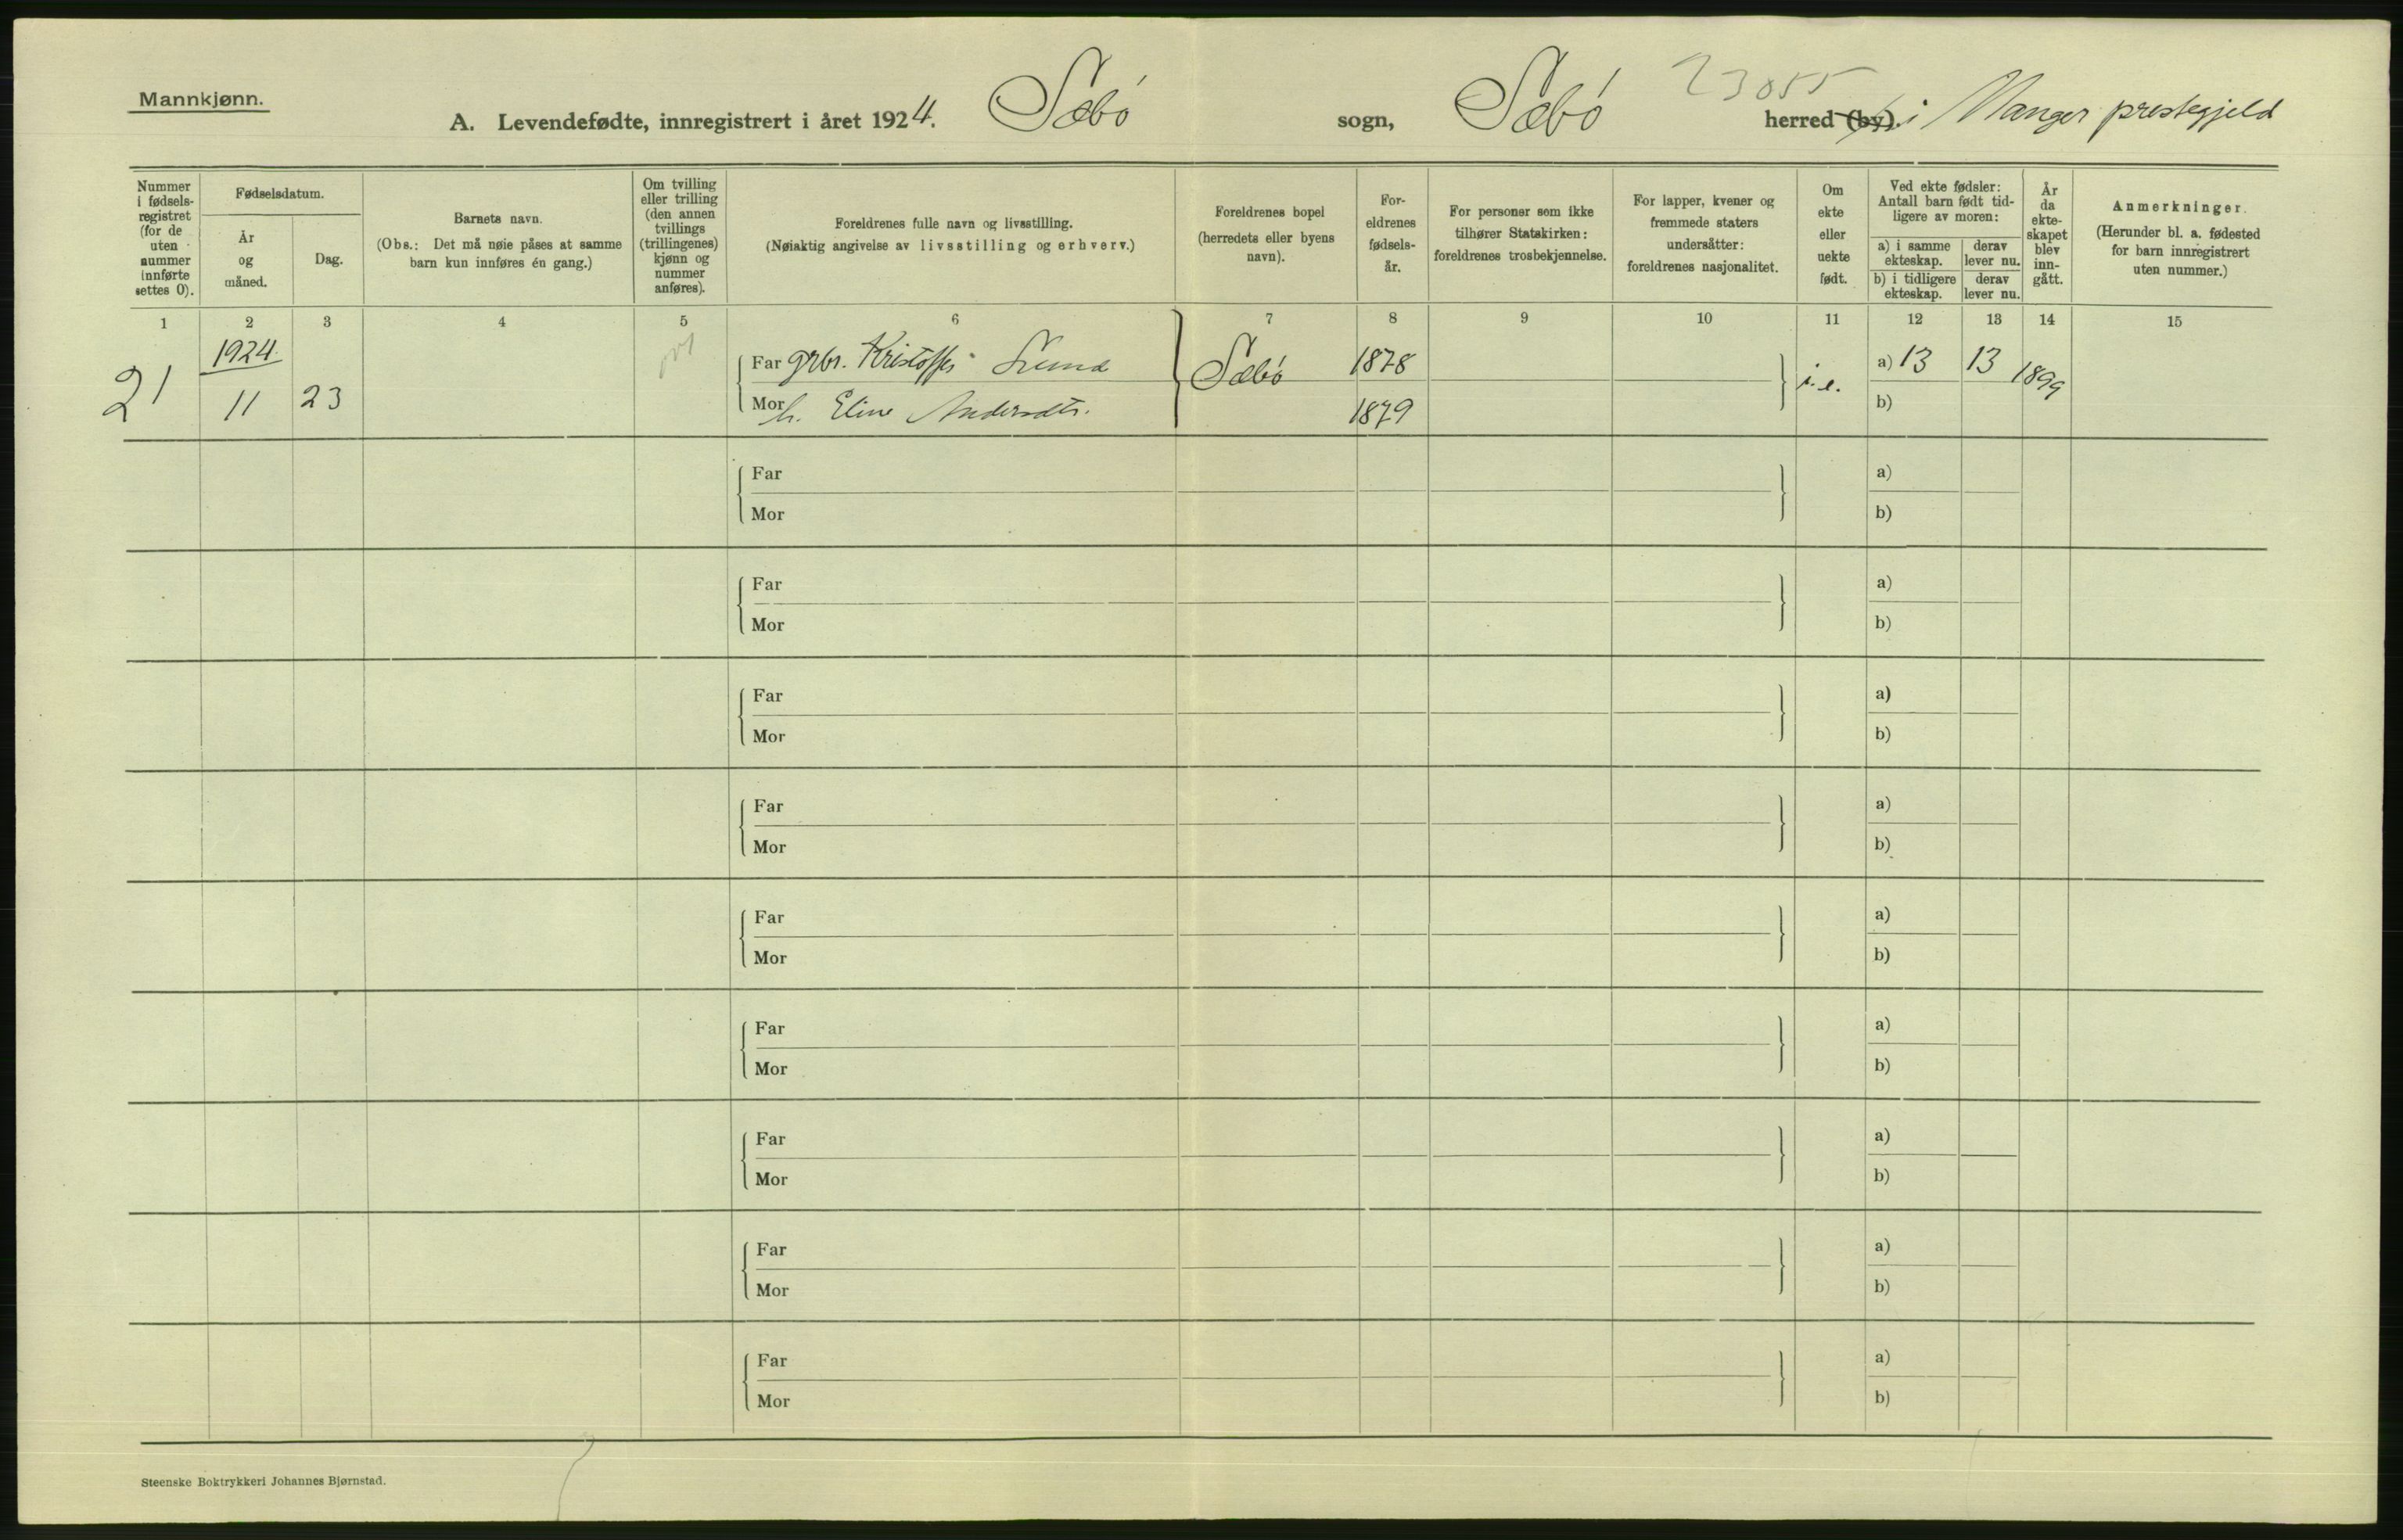 Mannkjønn.
23055
A. Levendefødte, innregistrert i året 1924. Sæbö sogn, Sæbö herred (by). i Manger prestegjeld
Nummer i fødselsregistret (for de uten nummer innførte settes 0).
Fødselsdatum.
År og måned.
Dag.
Barnets navn.
(Obs.: Det må nøie påses at samme barn kun innføres én gang.)
Om tvilling eller trilling (den annen tvillings (trillingenes) kjønn og nummer anføres).
Foreldrenes fulle navn og livsstilling.
(Nøiaktig angivelse av livsstilling og erhverv.)
Foreldrenes bopel (herredets eller byens navn).
Foreldrenes fødselsår.
For personer som ikke tilhører Statskirken: foreldrenes trosbekjennelse.
For lapper, kvener og fremmede staters undersåtter: foreldrenes nasjonalitet.
Om ekte eller uekte født.
Ved ekte fødsler: Antall barn født tidligere av moren:
a) i samme ekteskap.
derav lever nu.
b) i tidligere ekteskap.
derav lever nu.
År da ekteskapet blev inngått.
Anmerkninger.
(Herunder bl. a. fødested for barn innregistrert uten nummer.)
1 2 3 4 5 6 7 8 9 10 11 12 13 14 15
21 1924 11 23
Far grbr. Kristoffer Sæbö 1878 i.e. a) 13 13 1899
Mor h. Eline Andersdtr. 1879 b)
Far a)
Mor b)
Far a)
Mor b)
Far a)
Mor b)
Far a)
Mor b)
Far a)
Mor b)
Far a)
Mor b)
Far a)
Mor b)
Far a)
Mor b)
Far a)
Mor b)
Steenske Boktrykkeri Johannes Bjørnstad.